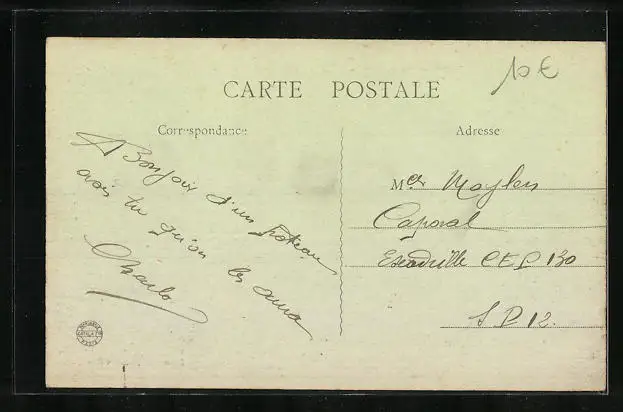 10 €
CARTE POSTALE
Correspondance
Bonjour d'un
crois tu qu'on les aura
Charlo
Adresse
Mr
Caporal
Escadrille C E P 130
S P 12.